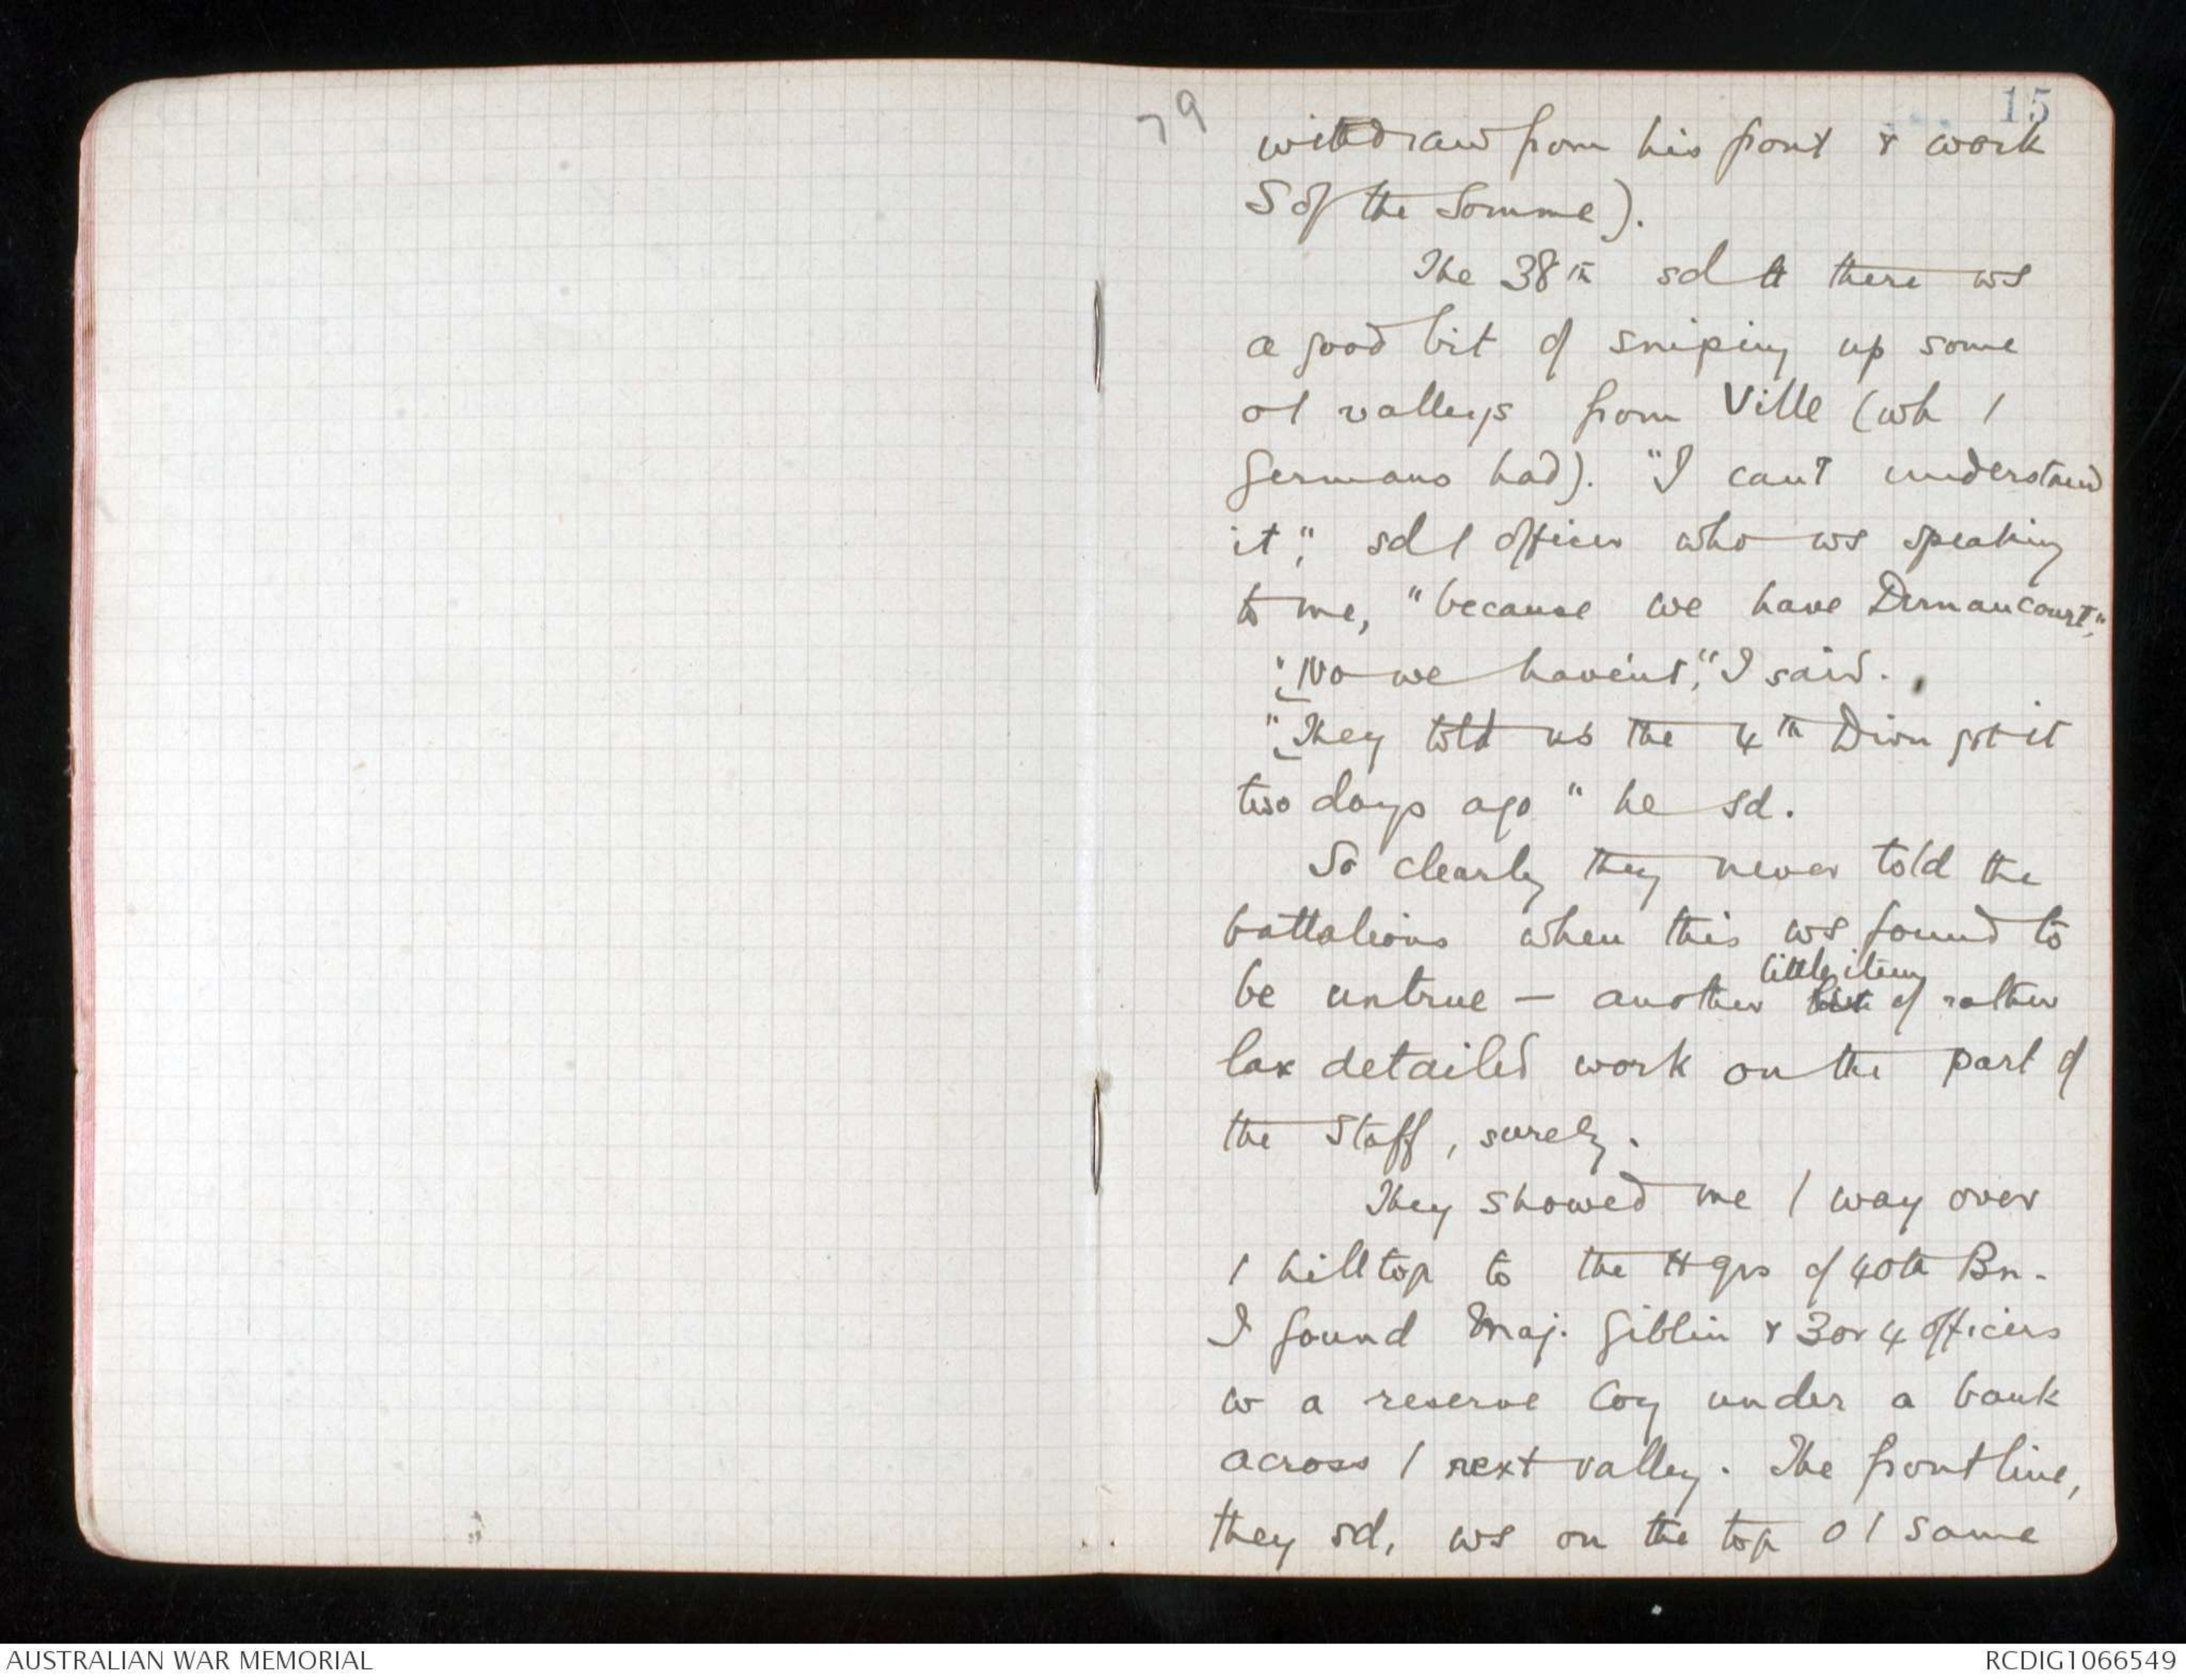 79
15
withdraw from his front & work
S of the Somme).
The 38th sd tt there ws
a good bit of sniping up some
o/ valleys from Ville (wh /
Germans had). "I can't understand
it", sd / officer who ws speaking
to me, "because we have Dernancourt."
"No we haven't," I said.
"They told us the 4th Divn got it
two days ago" he sd.
So clearly they never told the
battalions when this ws found to
little item
be untrue — another bit of rather
lax detailed work on the part of
the Staff, surely.
They showed me / way over
/ hill top to the Hqrs of 40th Bn.
I found Maj. Giblin & 3 or 4 officers
w a reserve Coy under a bank
across / next valley. The front line,
they sd, ws on the top o/ same
AUSTRALIAN WAR MEMORIAL
RCDIG1066549